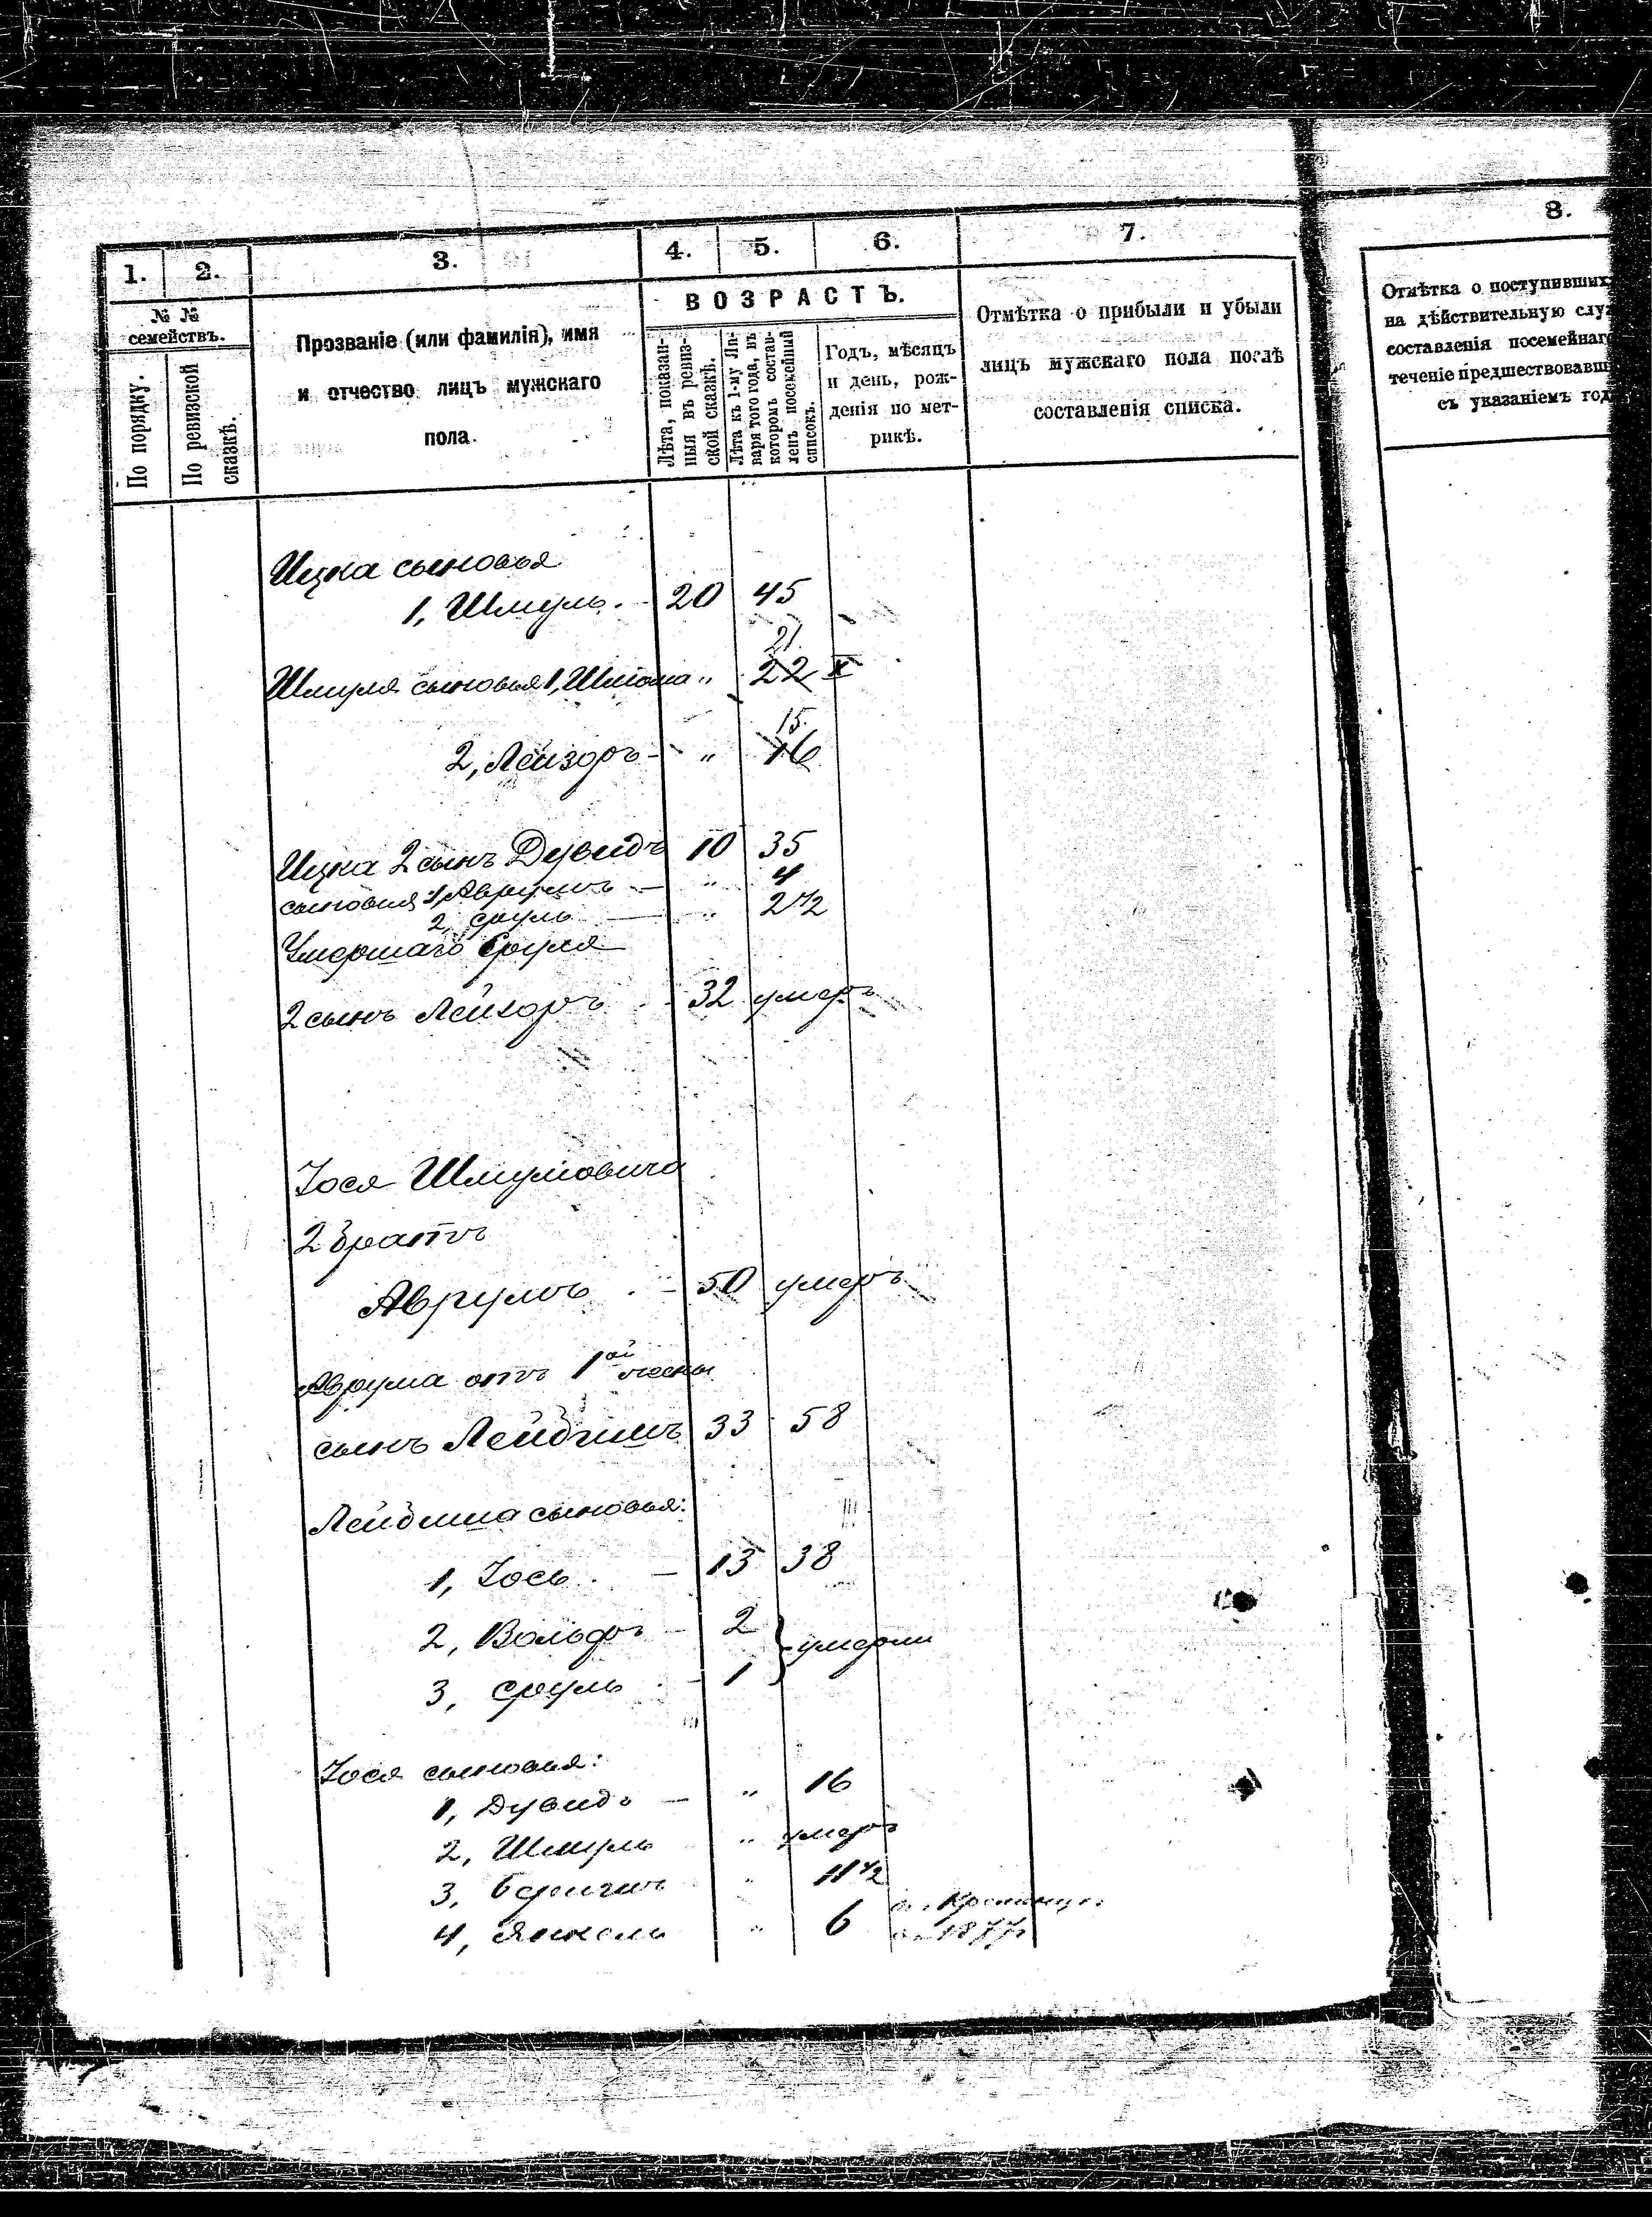 1. 2. 3. 4. 5. 6. 7. 8.
№ №
семействъ.
По порядку.
По ревизской
сказкѣ.
Прозваніе (или фамилія), имя
и отчество лицъ мужскаго
пола.
ВОЗРАСТЪ.
Лѣта, показан-
ныя въ ревиз-
ской сказкѣ.
Лѣта къ 1-му Ян-
варя того года, въ
которомъ состав-
ленъ посемейный
списокъ.
Годъ, мѣсяцъ
и день, рож-
денія по мет-
рикѣ.
Отмѣтка о прибыли и убыли
лицъ мужскаго пола послѣ
составленія списка.
Отмѣтка о поступивших
на дѣйствительную слу
составленія посемейнаг
теченіе предшествовавш
съ указаніемъ год
Ицка сыновья
1, Шмуль. 20 45
21
Шмуля сыновья 1, Шлиома " 22 X
15.
2, Лейзоръ - " 16
Ицка 2 сынъ Дувидъ 10 35
сыновья: 1, Аврумъ — " 4
2, Сруль — " 2 1/2
Умершаго Сруля
2 сынъ Лейзоръ - 32 умеръ
Іося Шмулмовича
2 братъ
Аврумъ . - 50 умеръ
Аврума отъ 1ой жены
сынъ Лейбишъ 33 58
Лейбиша сыновья:
1, Іось. — 13 38
2, Вольфъ - 2
умерли
3, Сруль . - 1
Іося сыновья:
1, Дувидъ — " 16
2, Шмуль " умеръ
3, " 11 1/2
4, Янкель " 6
1877